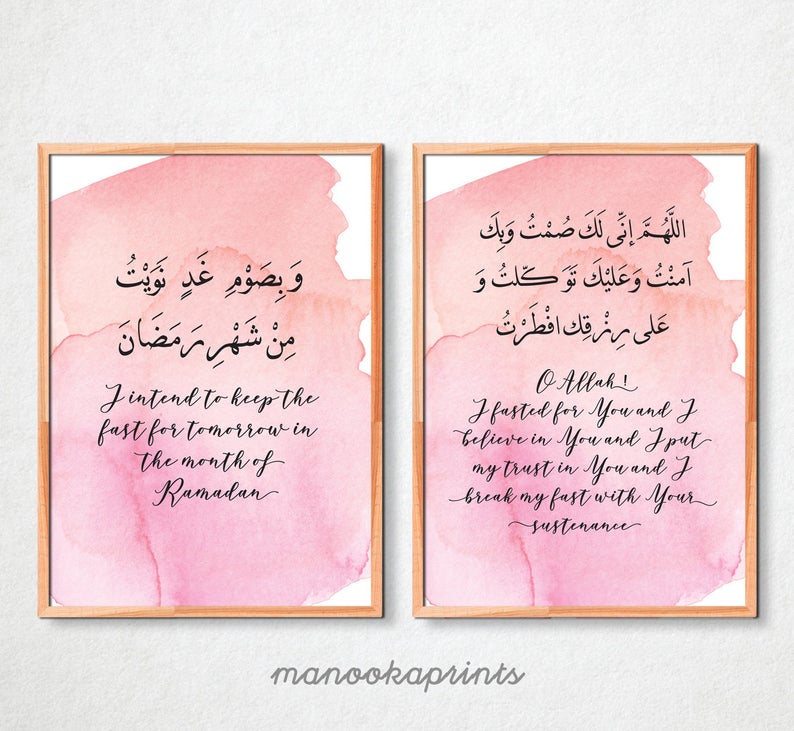 وَ بِصَوْمِ غَدٍ نَوَيْتُ
مِنْ شَهْرِ رَمَضَانَ
I intend to keep the
fast for tomorrow in
the month of
Ramadan
اللَّهُمَّ إِنِّى لَكَ صُمْتُ وَبِكَ
آمَنْتُ وَعَلَيْكَ تَوَكَّلتُ وَ
عَلى رِزْقِكَ افْطَرْتُ
O Allah!
I fasted for You and I
believe in You and I put
my trust in You and I
break my fast with Your
sustenance
manookaprints